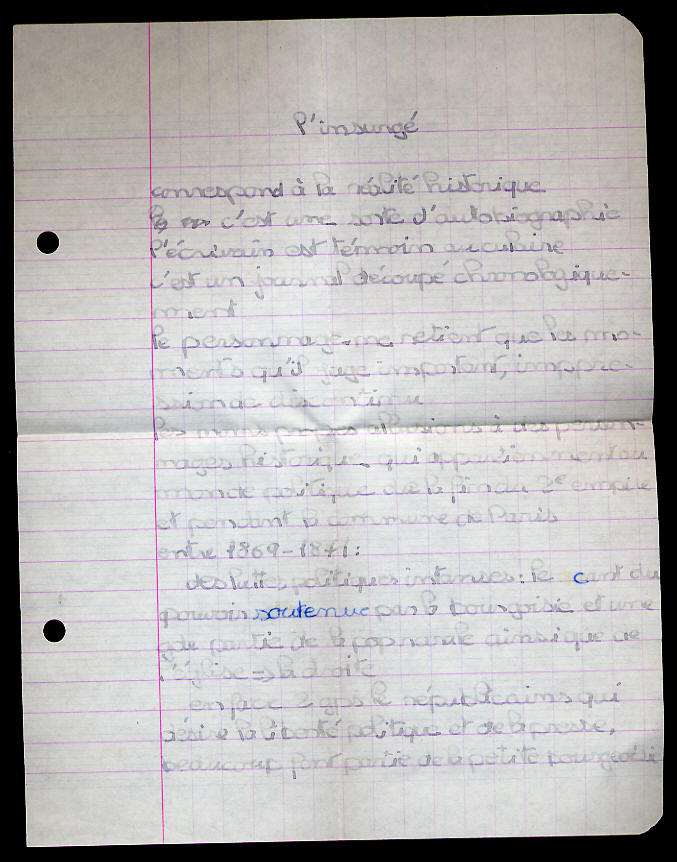 l'insurgé
correspond à la réalité historique
c'est une sorte d'autobiographie
l'écrivain est témoin
c'est un journal découpé chronologique-
ment
le personnage ne retient que les mo-
ments qu'il juge important, impre-
ssion de discontinu
les noms propres allusions à des person-
nages historique qui appartiennent au
monde politique de la fin du 2e empire
et pendant la commune de Paris
entre 1869-1871:
des luttes politiques intenses: le du
pouvoir soutenue par la bourgoisie et une
gde partie de la pop rurale ainsi que de
l'église => la droite
en face 2 gps le républicains qui
désire la liberté politique et de la presse,
beaucoup font partie de la petite bourgeoisi